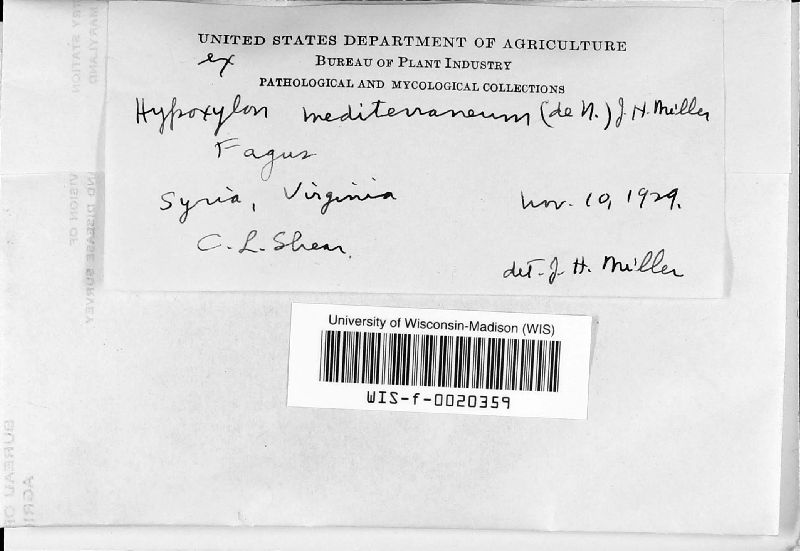 UNITED STATES DEPARTMENT OF AGRICULTURE
ex BUREAU OF PLANT INDUSTRY
PATHOLOGICAL AND MYCOLOGICAL COLLECTIONS
Hypoxylon mediterraneum (de N.) J. H. Miller
Fagus
Syria, Virginia Nov. 10, 1929.
C. L. Shear.
det. J. H. Miller
University of Wisconsin-Madison (WIS)
WIS-f-0020359